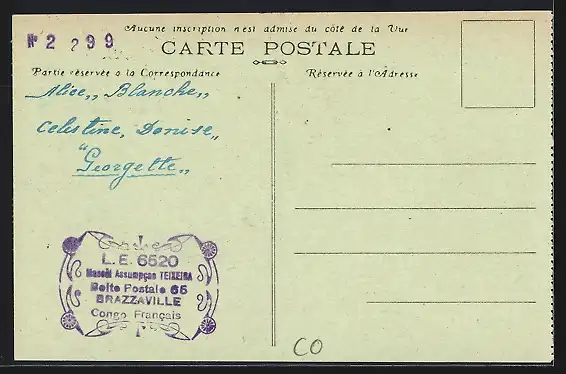 Aucune inscription n'est admise du côté de la Vue
Nº 2 299
CARTE POSTALE
Partie réservée a la Correspondance
Réservée à l'Adresse
Alice,, Blanche,,
Celestine, Denise,,
"Georgette,,
L.E. 6520
Manoël Assumpçao TEIXEIRA
Boite Postale 65
BRAZZAVILLE
Congo Français
CO